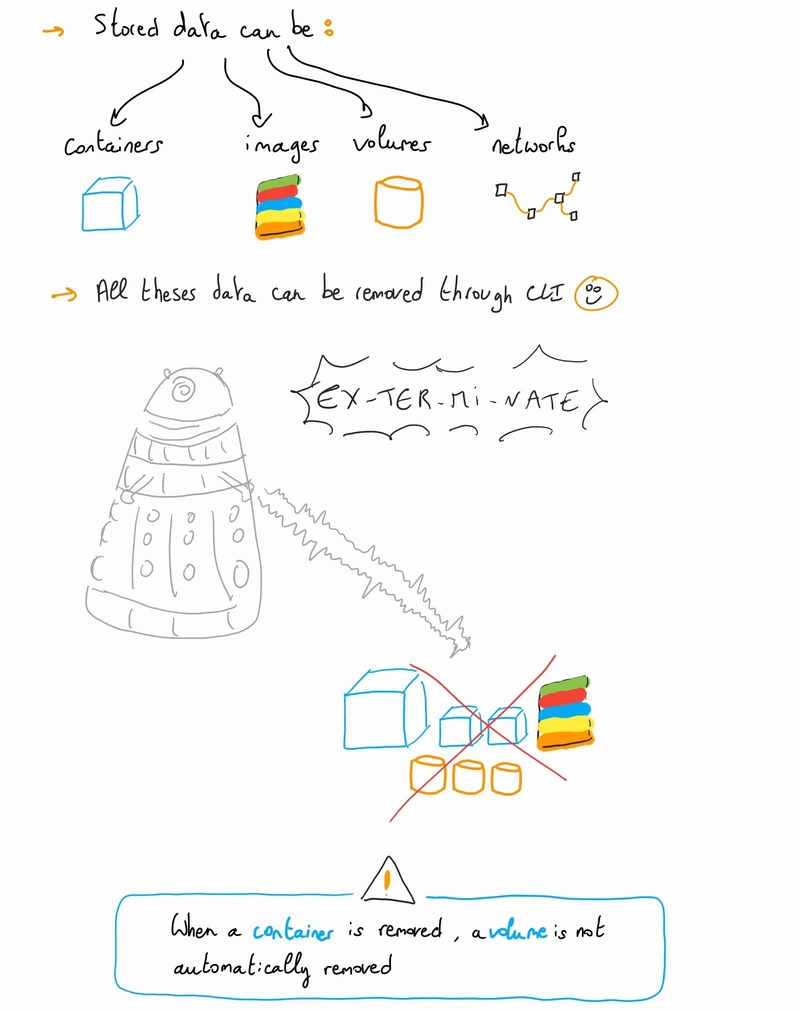 → Stored data can be :
containers images volumes networks
→ All theses data can be removed through CLI
EX-TER-Mi-NATE
!
When a container is removed, a volume is not
automatically removed